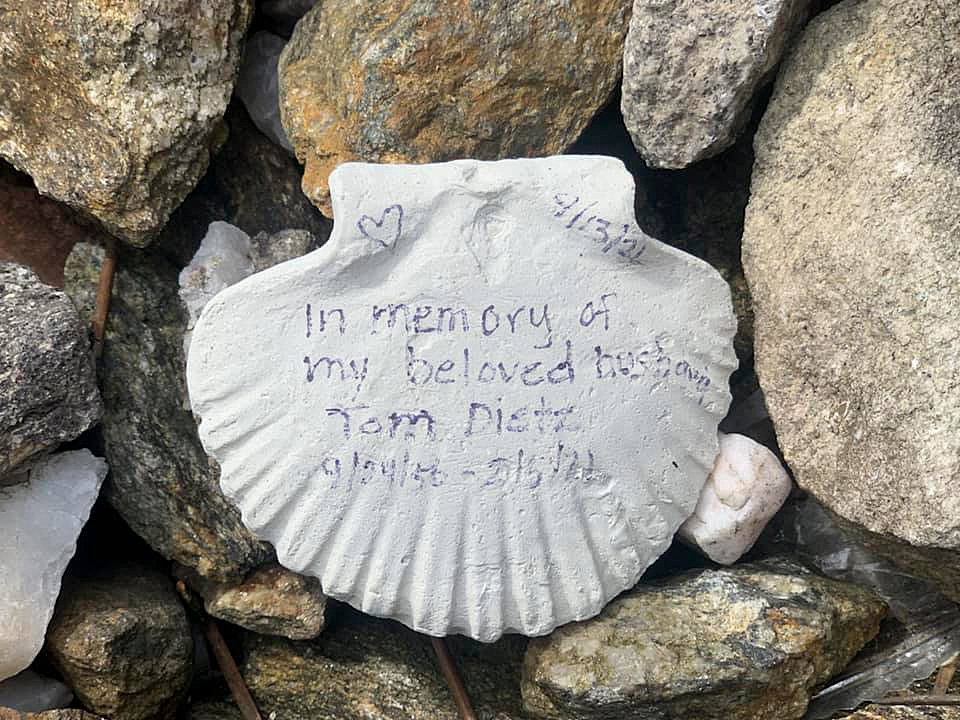 9/13/21
In memory of
my beloved husband
Tom Dietz
9/24/56 - 2/5/21